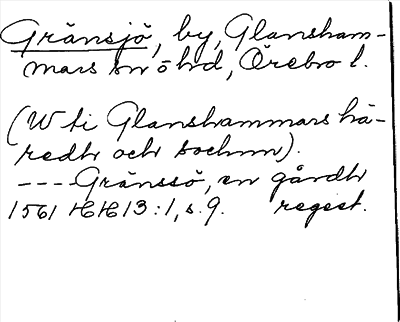 Gränsjö, by, Glansham-
mars sn o hd, Örebro l.
(W ti Glanshammars hä-
redh och sochnn).
----Gränssö, en gårdh
1561 HH 13:1, s.9. regest.